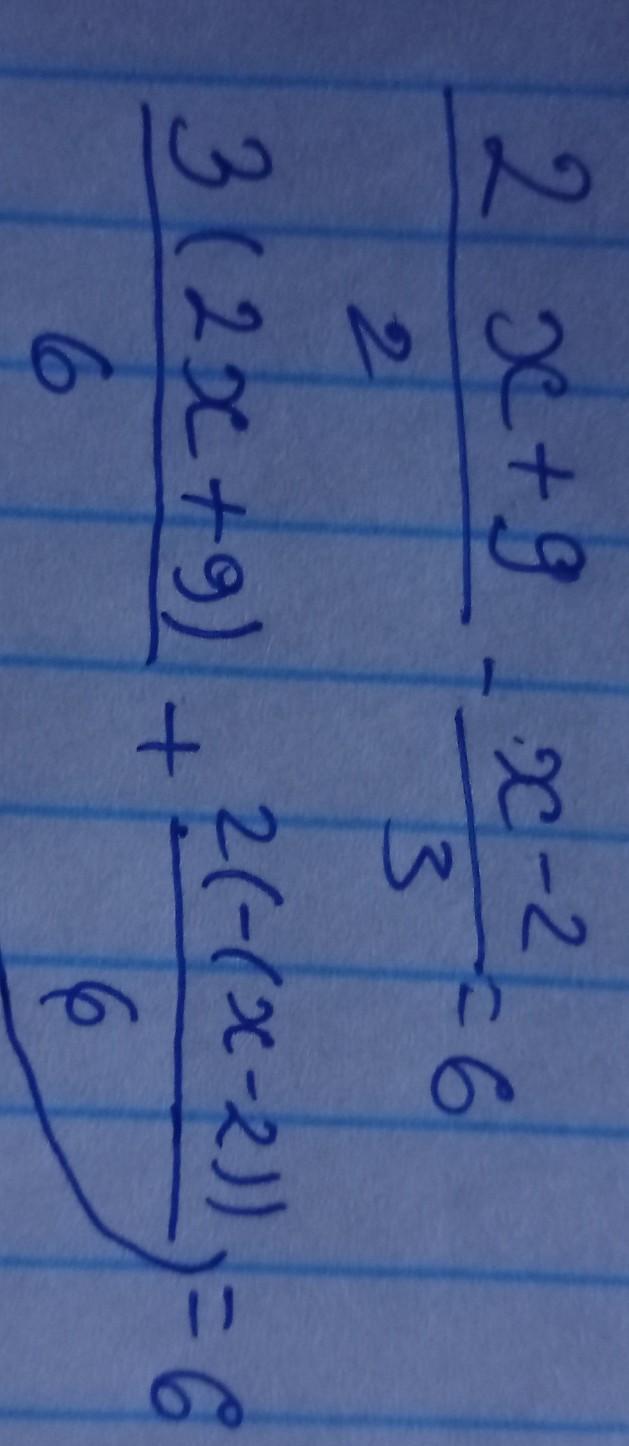 2x+9/2 - x-2/3 = 6
3(2x+9)/6 + 2(-(x-2))/6 = 6